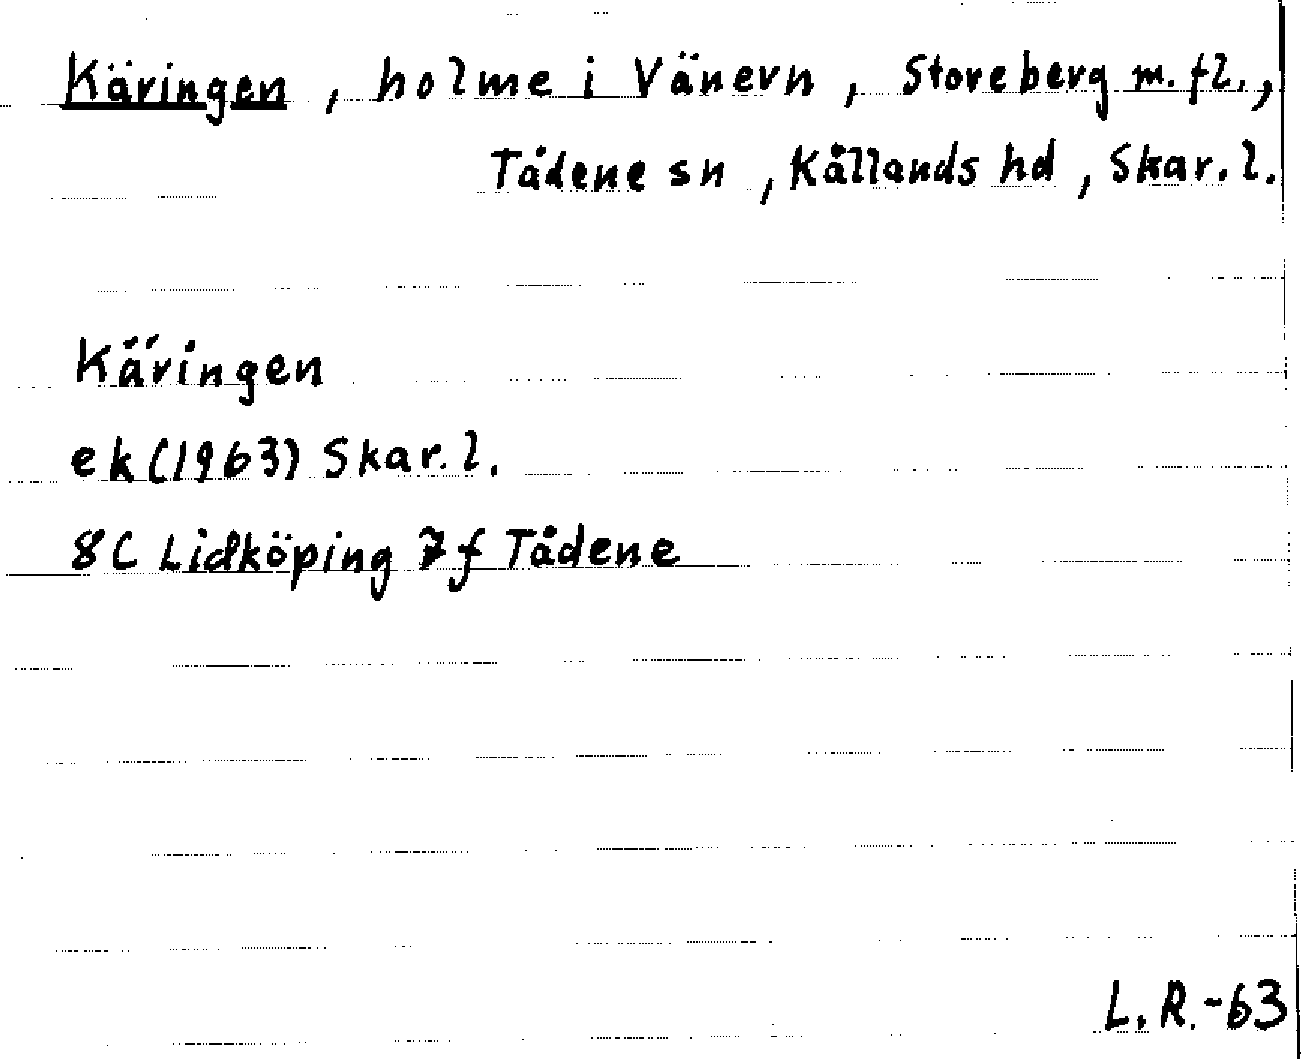 Käringen, holme i Vänern, Storeberg m.fl.,
Tådene sn, Kållands hd, Skar.l.
Käringen
ek(1963) Skar.l.
8C Lidköping 7f Tådene
L.R.-63